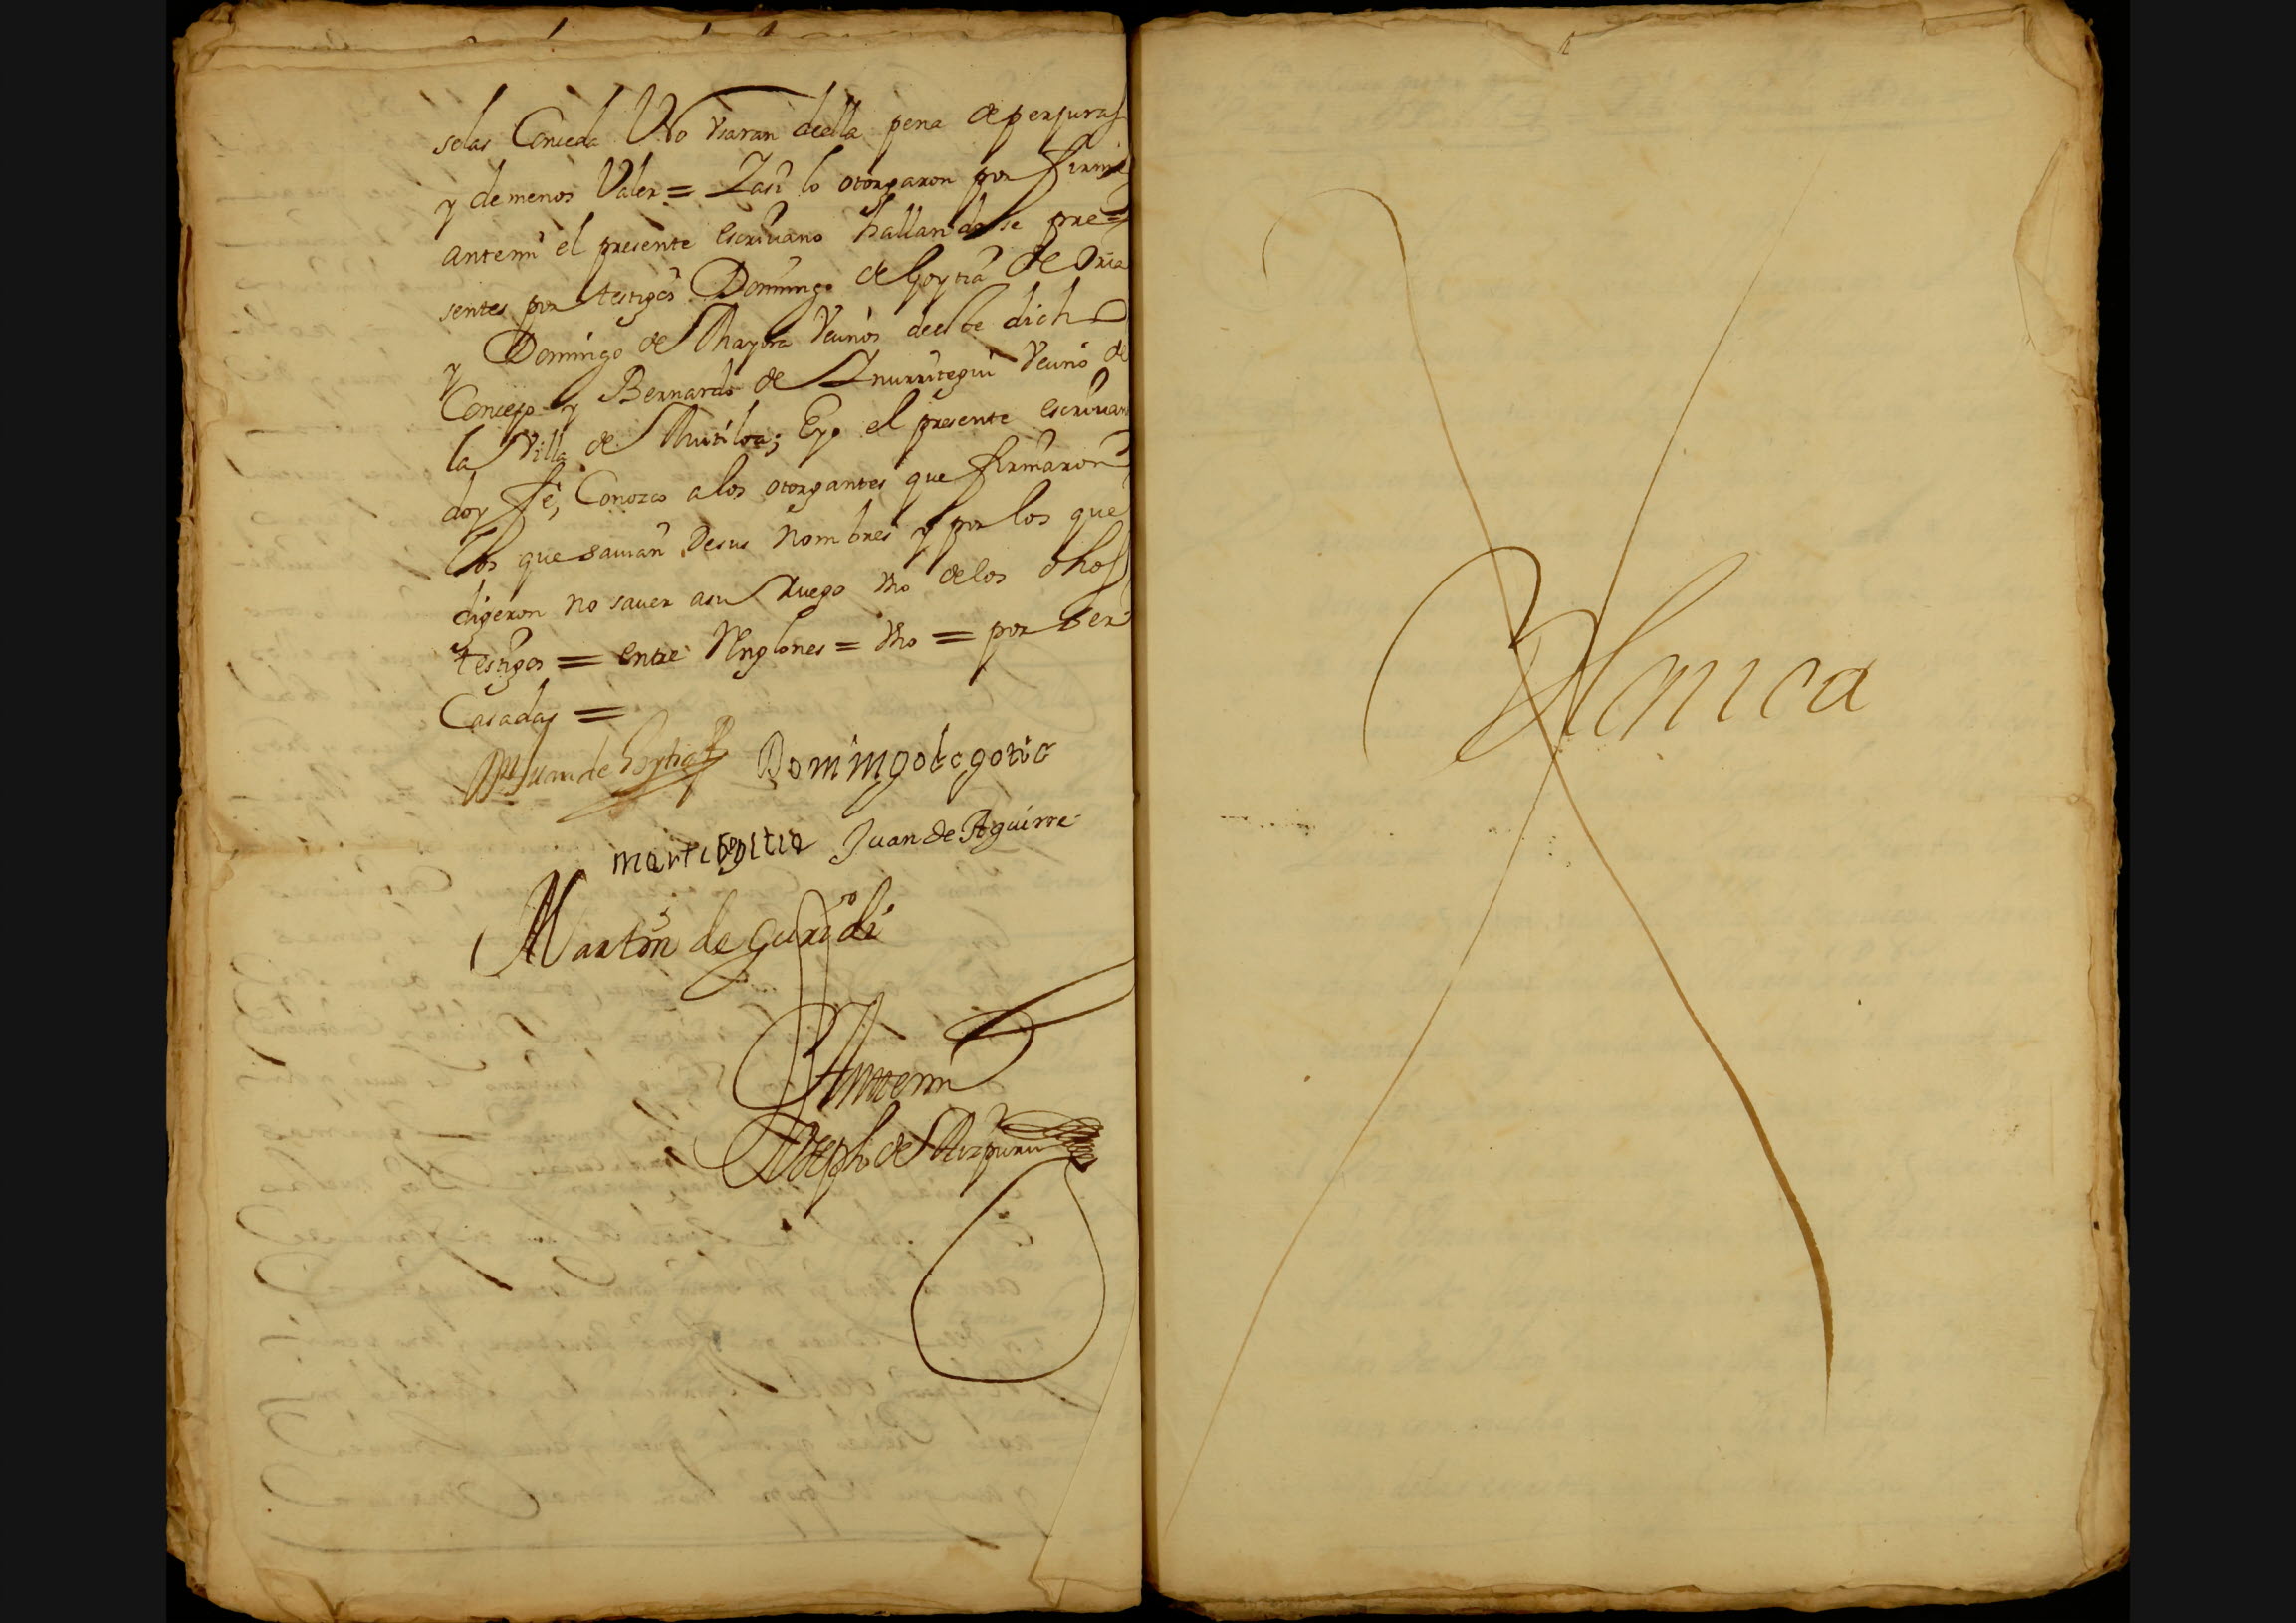 selas Conceda No Usaran deella pena de perjuras
y de menos Valer = Yasi lo otorgaron por firme
antemi el presente escriuano hallandose pre=
sentes por testigos Domingo de Goytia de Oria
y Domingo de Mayora Vecinos deeste dicho
Concejo y Bernardo de Ynurritegui Vecino de
la Villa de Mutiloa; Eyo el presente escriuano
doy fe, Conozco alos otorgantes que firmaron
los que sauian Desus Nombres y por los que
digeron no sauer asu Ruego Vno delos dhos
testigos = entre Renglones = Vno = por ser
Casadas =
Juan de Goytia Domingo de gotia
marti Goitia Juan de Aguirre
Martin de Guridi
Antemi
Joseph de Aizpuru
Blanca